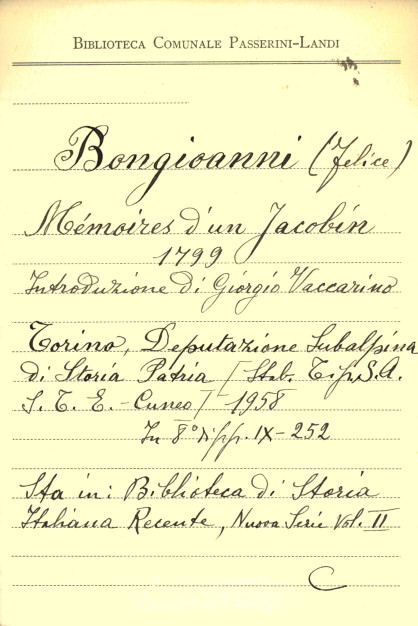 BIBLIOTECA COMUNALE PASSERINI-LANDI
Bongioanni (Felice)
Mémoires d'un Jacobin
1799
Introduzione di Giorgio Vaccarino
Torino, Deputazione Subalpina
di Storia Patria / Stab. Tip. S.A.
S. T. E. - Cuneo / 1958
In 8° di pp. IX-252
Sta in: Biblioteca di Storia
Italiana Recente, Nuova Serie Vol. II
C